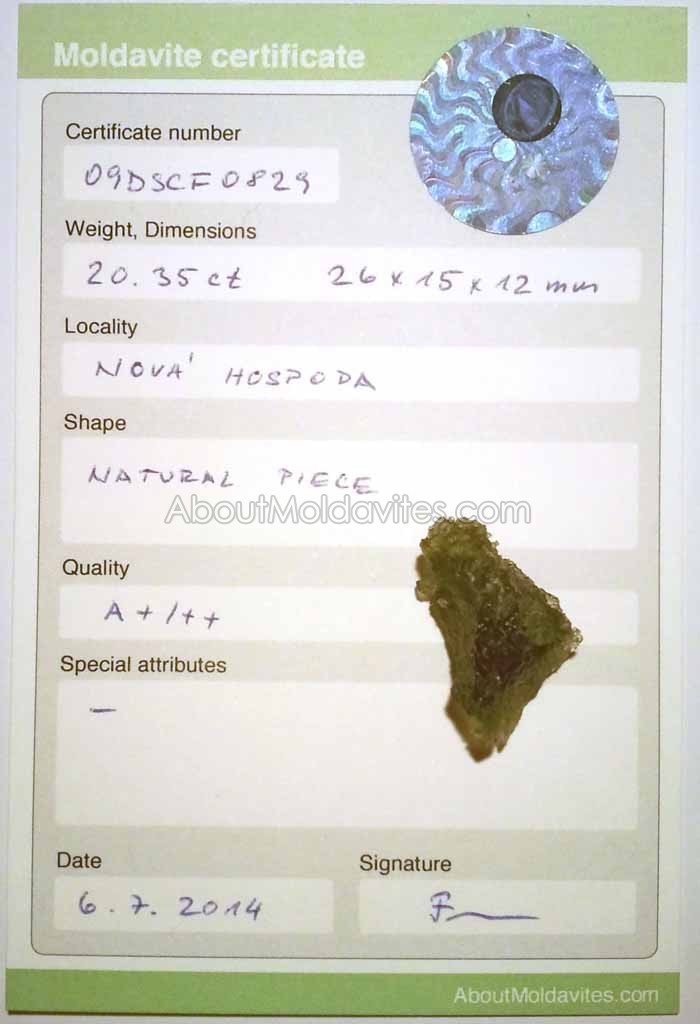 Moldavite certificate
Certificate number
09DSCF0829
Weight, Dimensions
20.35 ct 26 x 15 x 12 mm
Locality
NOVÁ HOSPODA
Shape
NATURAL PIECE
AboutMoldavites.com
Quality
A+/++
Special attributes
—
Date
Signature
6.7.2014
AboutMoldavites.com